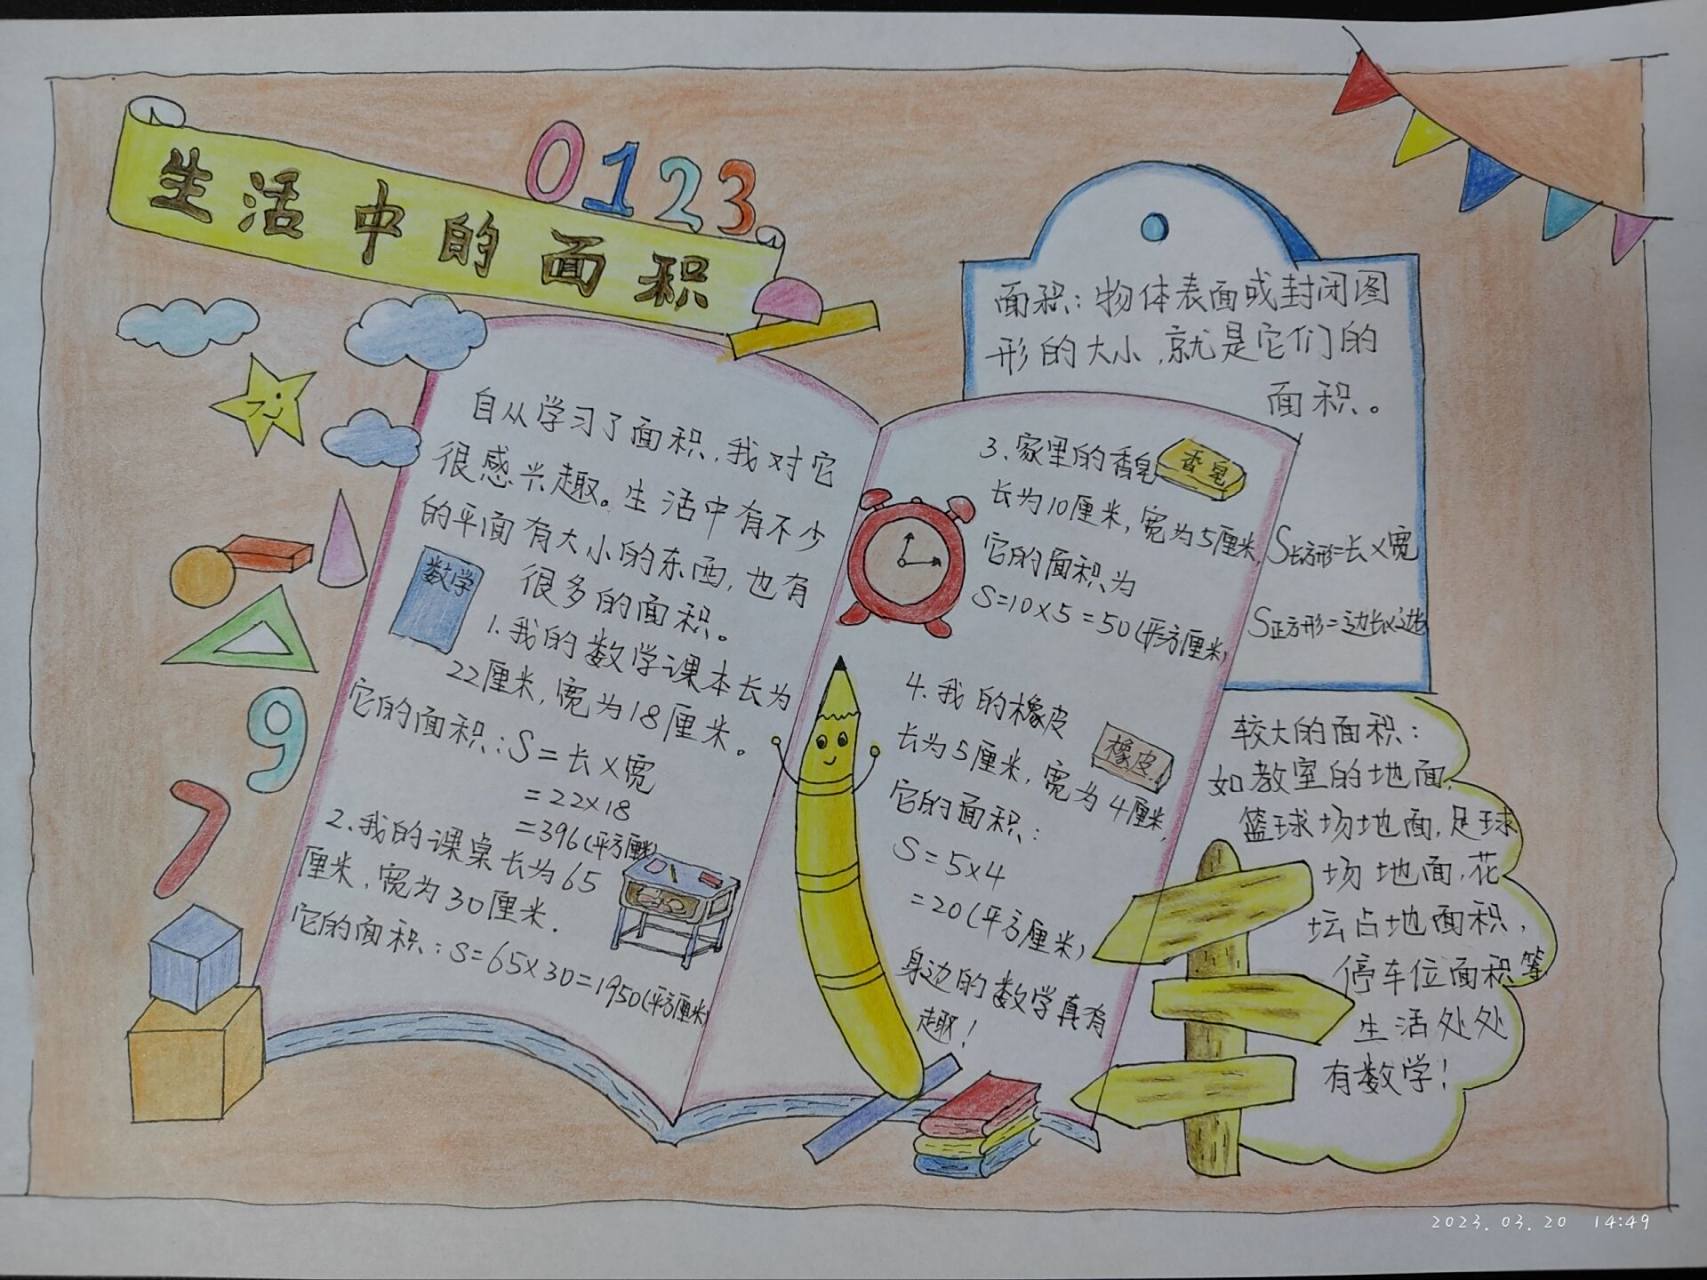 生活中的面积
0123
面积：物体表面或封闭图
形的大小，就是它们的
面积。
S长方形=长×宽
S正方形=边长×边长
自从学习了面积，我对它
很感兴趣。生活中有不少
的平面有大小的东西，也有
很多的面积。
数学
1.我的数学课本长为
22厘米，宽为18厘米。
它的面积：S=长×宽
=22×18
=396(平方厘米)
2.我的课桌长为65
厘米，宽为30厘米.
它的面积：S=65×30=1950(平方厘米)
3.家里的香皂
香皂
长为10厘米，宽为5厘米，
它的面积为
S=10×5=50(平方厘米)
4.我的橡皮
橡皮
长为5厘米，宽为4厘米，
它的面积：
S=5×4
=20(平方厘米)
身边的数学真有
趣！
较大的面积：
如教室的地面，
篮球场地面，足球
场地面，花
坛占地面积，
停车位面积等
生活处处
有数学！
9
7
2023.03.20 14:49